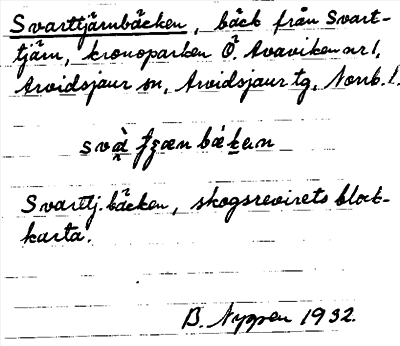 Svarttjärnbäcken, bäck från Svart-
tjärn, kronoparken Ö. Avaviken nr 1,
Arvidsjaur sn, Arvidsjaur tg, Norrb. l.
Svarttj.bäcken, skogsrevirets block-
karta.
B. Nygren 1932.